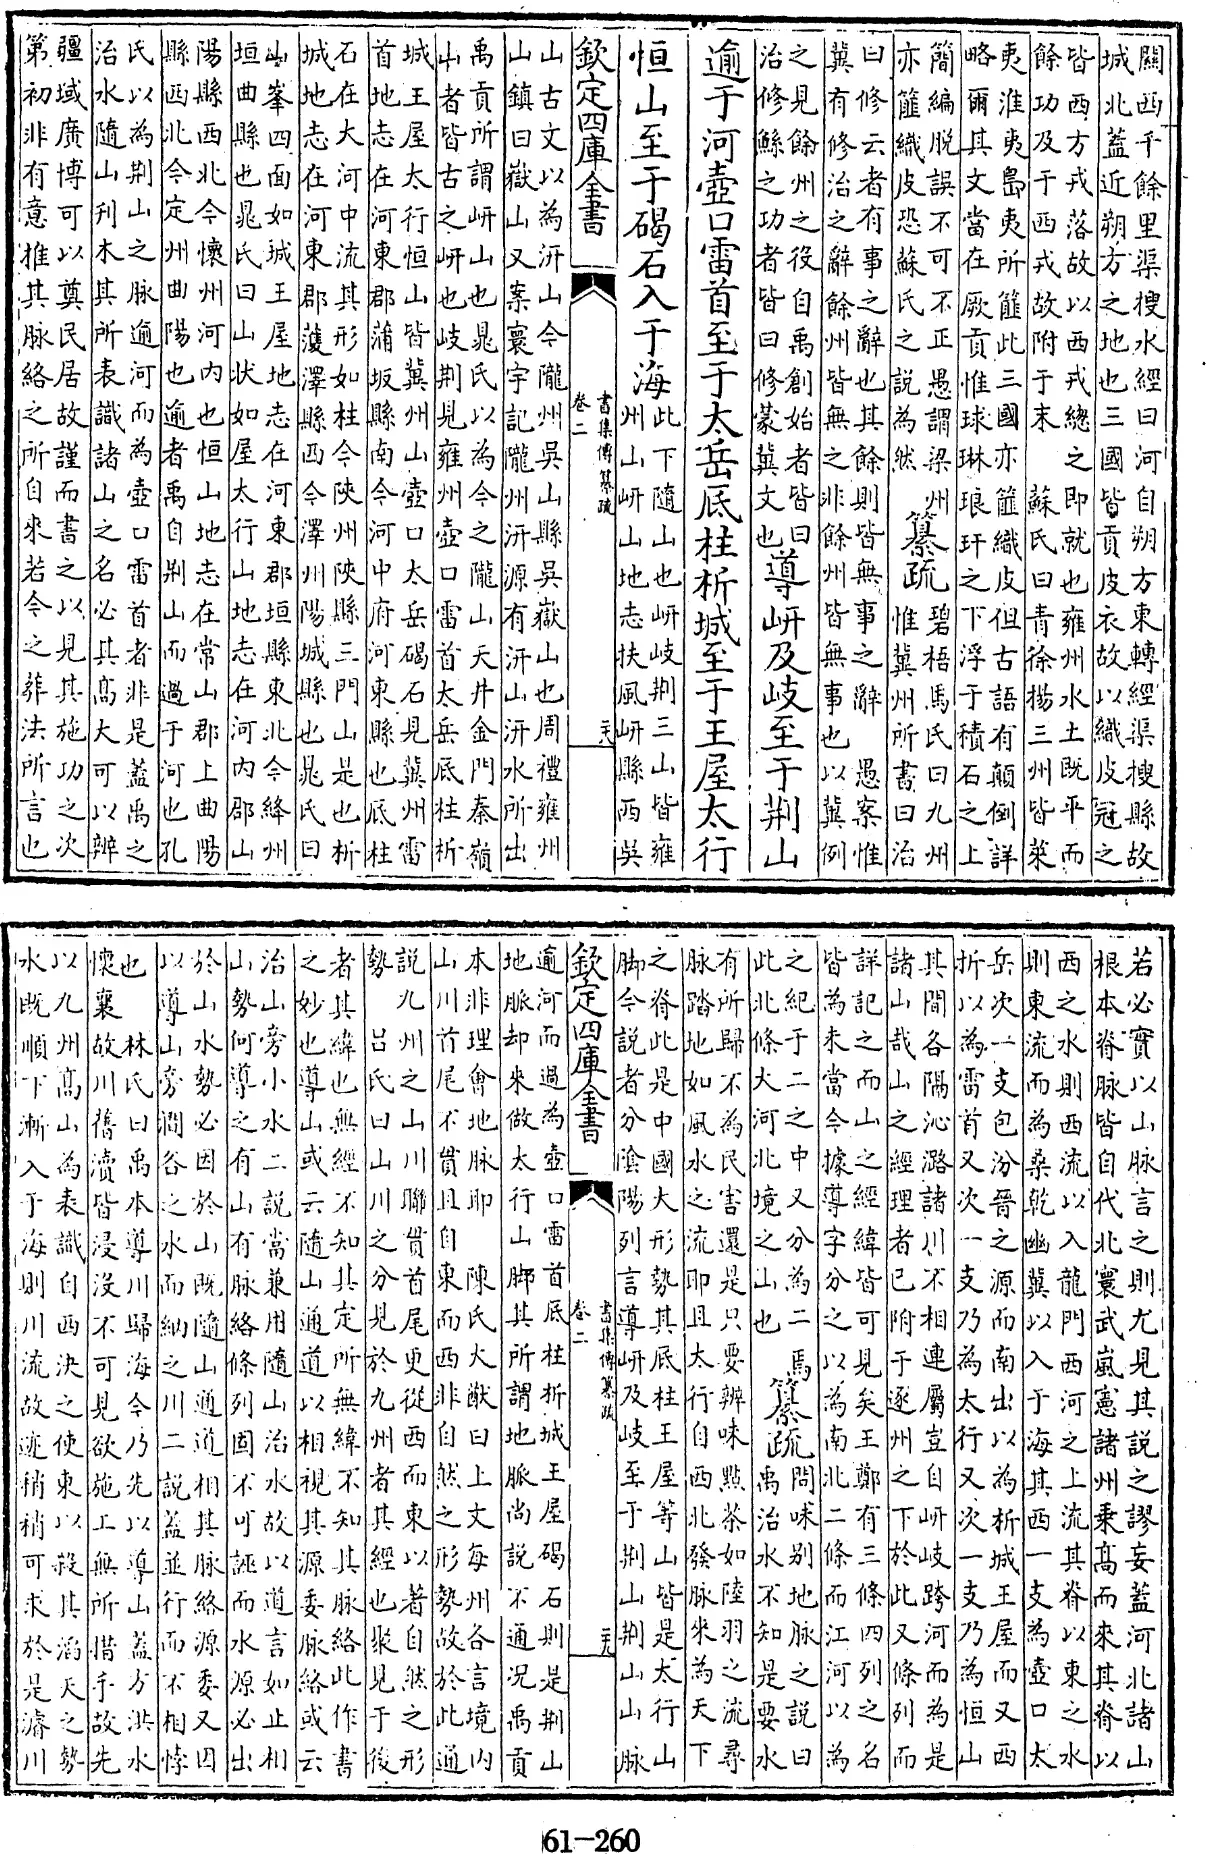 關西千餘里渠搜水經曰河自朔方東轉經渠搜縣故
城北蓋近朔方之地也三國皆貢皮衣故以織皮冠之
皆西方戎落故以西戎總之即就也雍州水土既平而
餘功及于西戎故附于末　蘇氏曰青徐揚三州皆萊
夷淮夷島夷所篚此三國亦篚織皮但古語有顛倒詳
略爾其文當在厥貢惟球琳琅玕之下浮于積石之上
簡編脫誤不可不正愚謂梁州
亦篚織皮恐蘇氏之説為然
纂疏
碧梧馬氏曰九州
惟冀州所書曰治
曰修云者有事之辭也其餘則皆無事之辭　愚案惟
冀有修治之辭餘州皆無之非餘州皆無事也以冀例
之見餘州之役自禹創始者皆曰
治修鯀之功者皆曰修蒙冀文也
導岍及岐至于荆山
逾于河壺口雷首至于太岳厎柱析城至于王屋太行
恒山至于碣石入于海
此下隨山也岍岐荆三山皆雍
州山岍山地志扶風岍縣西吳
欽定四庫全書
書集傳纂疏
卷二
二十八
山古文以為汧山今隴州吳山縣吳嶽山也周禮雍州
山鎮曰嶽山又案寰宇記隴州汧源有汧山汧水所出
禹貢所謂岍山也晁氏以為今之隴山天井金門秦嶺
山者皆古之岍也岐荆見雍州壺口雷首太岳厎柱析
城王屋太行恒山皆冀州山壺口太岳碣石見冀州雷
首地志在河東郡蒲坂縣南今河中府河東縣也厎柱
石在大河中流其形如柱今陜州陜縣三門山是也析
城地志在河東郡濩澤縣西今澤州陽城縣也晁氏曰
山峯四面如城王屋地志在河東郡垣縣東北今絳州
垣曲縣也晁氏曰山狀如屋太行山地志在河内郡山
陽縣西北今懷州河内也恒山地志在常山郡上曲陽
縣西北今定州曲陽也逾者禹自荆山而過于河也孔
氏以為荆山之脉逾河而為壺口雷首者非是蓋禹之
治水隨山刋木其所表識諸山之名必其髙大可以辨
疆域廣博可以奠民居故謹而書之以見其施功之次
第初非有意推其脉絡之所自來若今之葬法所言也
若必實以山脉言之則尤見其説之謬妄蓋河北諸山
根本脊脉皆自代北寰武嵐憲諸州乗髙而來其脊以
西之水則西流以入龍門西河之上流其脊以東之水
則東流而為桑乾幽冀以入于海其西一支為壺口太
岳次一支包汾晉之源而南出以為析城王屋而又西
折以為雷首又次一支乃為太行又次一支乃為恒山
其間各隔沁潞諸川不相連屬豈自岍岐跨河而為是
諸山哉山之經理者已附于逐州之下於此又條列而
詳記之而山之經緯皆可見矣王鄭有三條四列之名
皆為未當今據導字分之以為南北二條而江河以為
之紀于二之中又分為二焉
此北條大河北境之山也
纂疏
問味别地脉之説曰
禹治水不知是要水
有所歸不為民害還是只要辨味㸃茶如陸羽之流尋
脉踏地如風水之流耶且太行自西北發脉來為天下
之脊此是中國大形勢其厎柱王屋等山皆是太行山
脚今説者分隂陽列言導岍及岐至于荆山荆山山脉
欽定四庫全書
書集傳纂疏
卷二
二十九
逾河而過為壺口雷首厎柱析城王屋碣石則是荆山
地脈却來做太行山脚其所謂地脈尚説不通况禹貢
本非理會地脉耶　陳氏大猷曰上文每州各言境内
山川首尾不貫且自東而西非自然之形勢故於此通
説九州之山川聯貫首尾更從西而東以著自然之形
勢　吕氏曰山川之分見於九州者其經也聚見于後
者其緯也無經不知其定所無緯不知其脉絡此作書
之妙也導山或云隨山通道以相視其源委脉絡或云
治山旁小水二説當兼用隨山治水故以道言如止相
山勢何導之有山有脉絡條列固不可誣而水源必出
於山水勢必因於山既隨山通道相其脉絡源委又因
以導山旁澗谷之水而納之川二説蓋並行而不相悖
也　林氏曰禹本導川歸海今乃先以導山蓋方洪水
懷襄故川舊瀆皆浸没不可見欲施工無所措手故先
以九州髙山為表識自西決之使東以殺其滔天之勢
水既順下漸入于海則川流故迹稍稍可求於是濬川
61-260